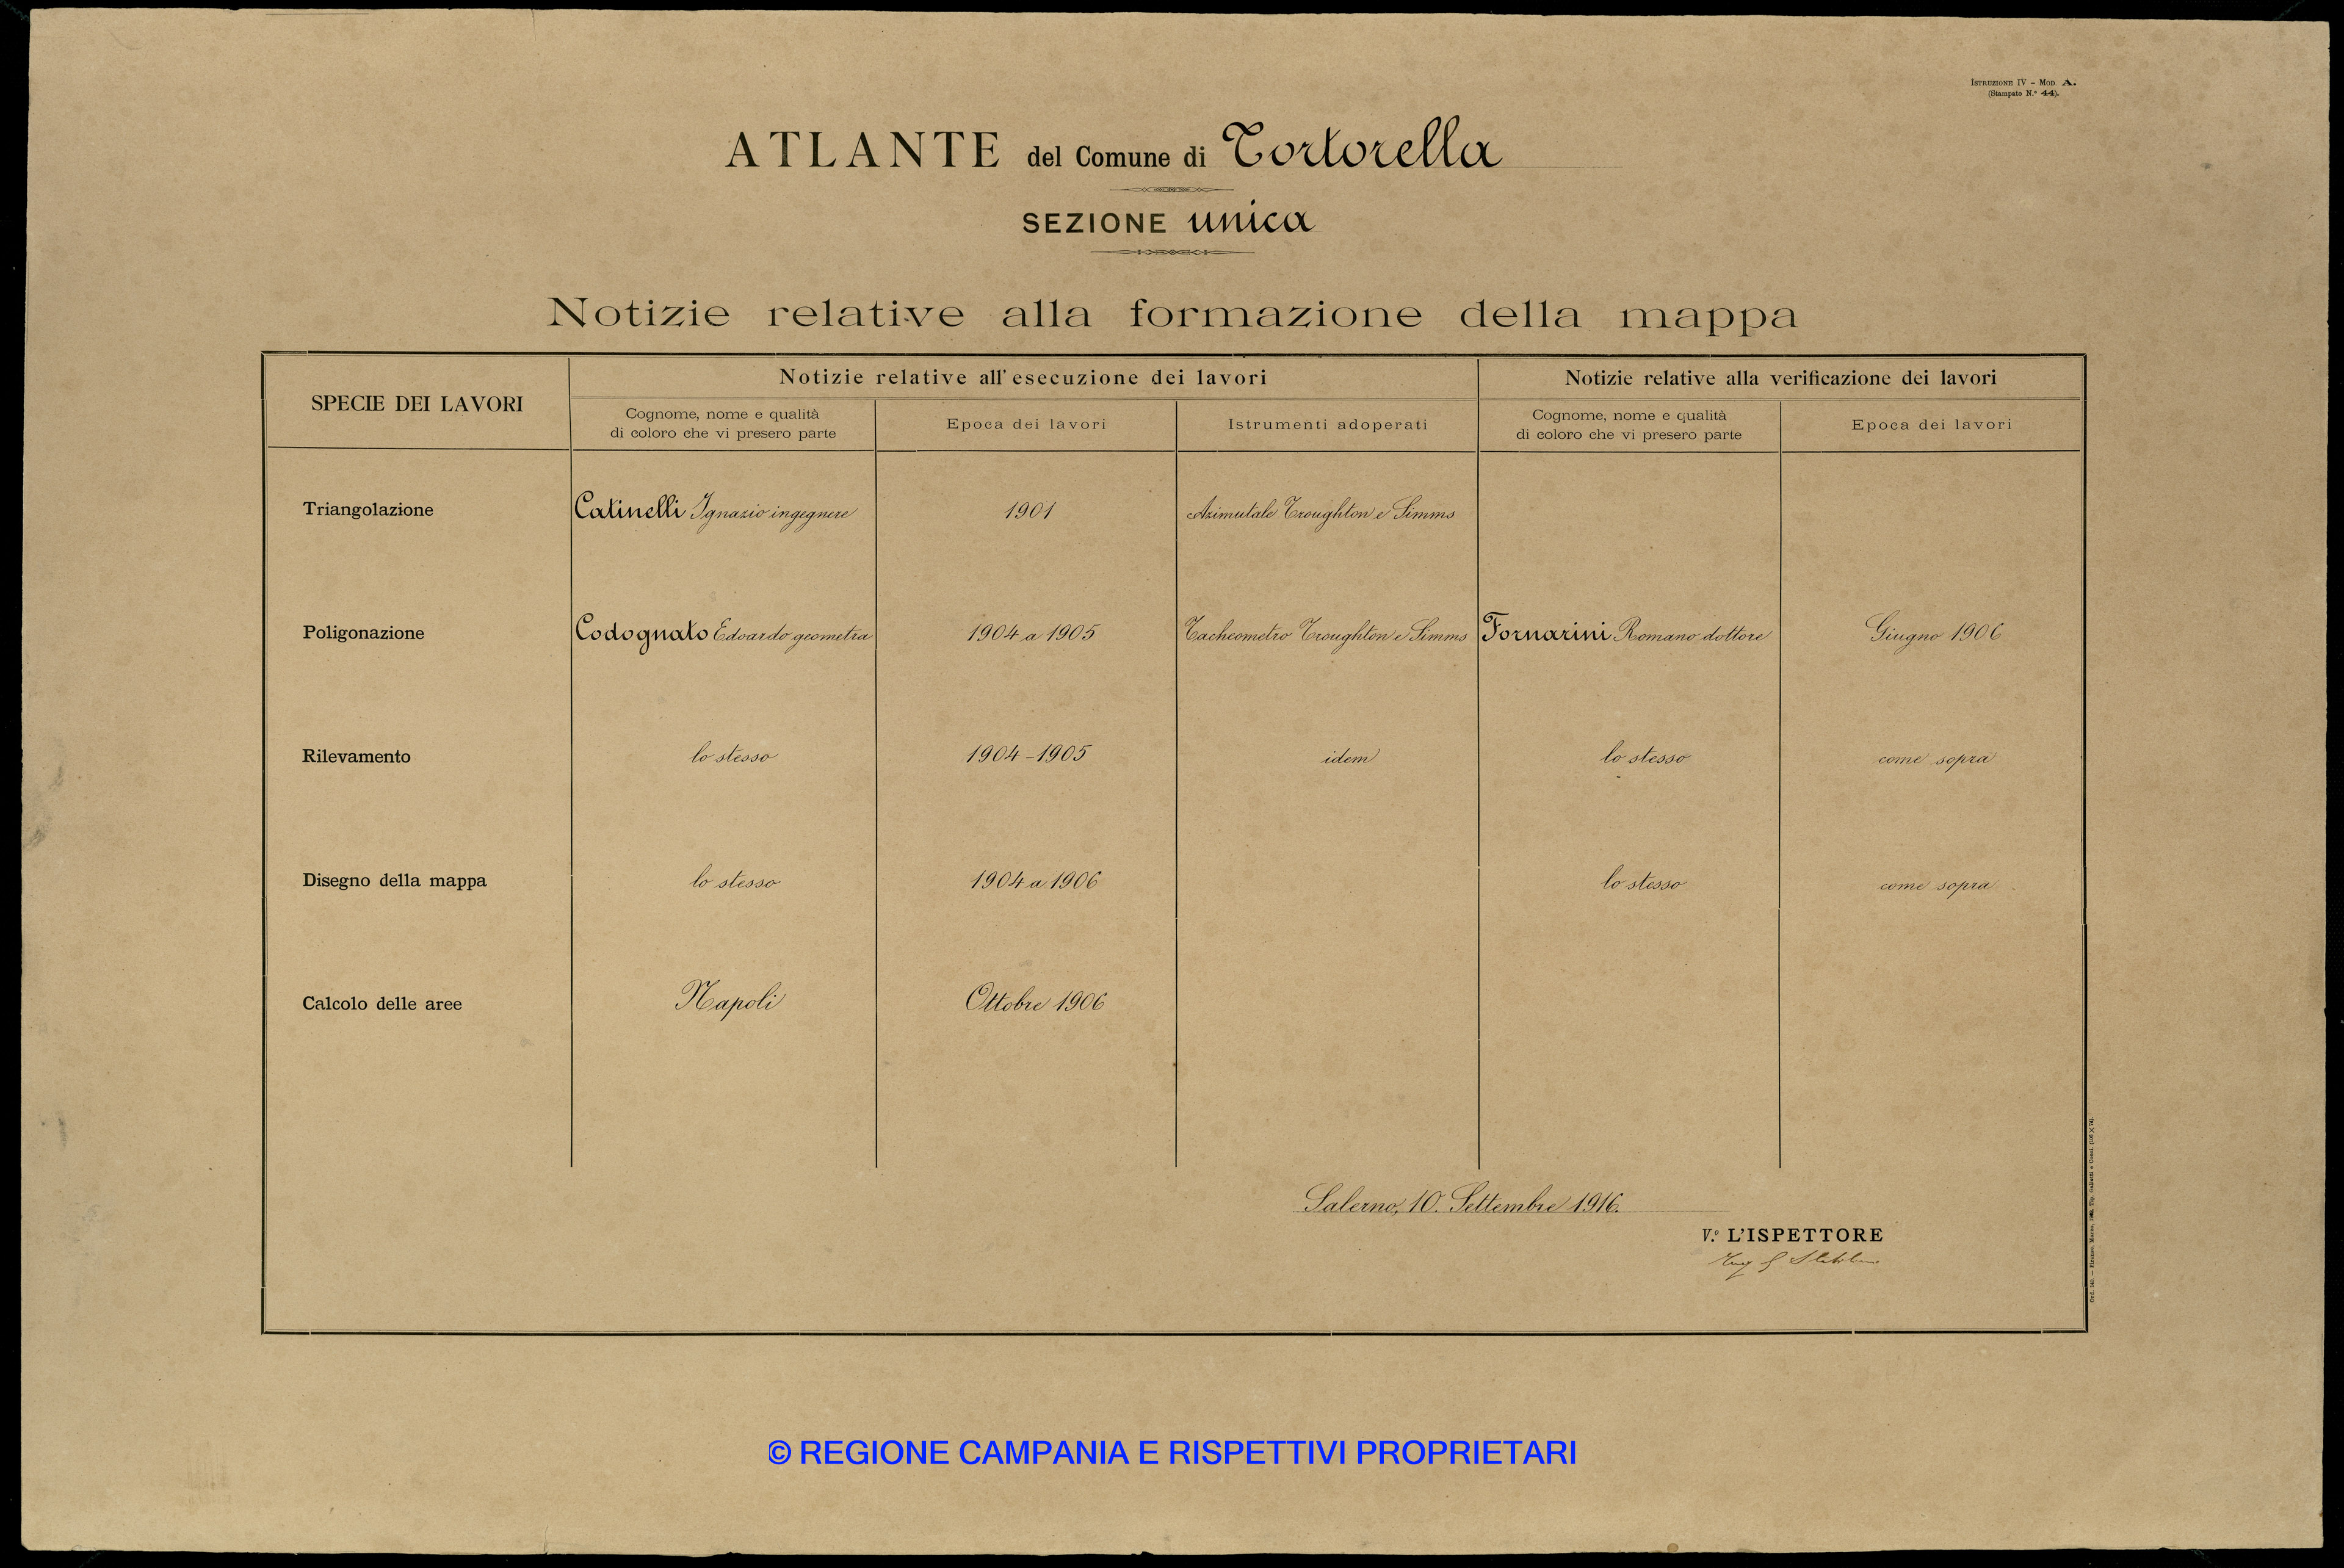 ISTRUZIONE IV - MOD. A.
(Stampato N.° 44).
ATLANTE del Comune di Tortorella
SEZIONE unica
Notizie relative alla formazione della mappa
SPECIE DEI LAVORI
Notizie relative all'esecuzione dei lavori
Notizie relative alla verificazione dei lavori
Cognome, nome e qualità
di coloro che vi presero parte
Epoca dei lavori
Istrumenti adoperati
Cognome, nome e qualità
di coloro che vi presero parte
Epoca dei lavori
Triangolazione
Catinelli Ignazio ingegnere
1901
Azimutale Troughton e Simms
Poligonazione
Codognato Edoardo geometra
1904 a 1905
Tacheometro Troughton e Simms
Fornarini Romano dottore
Giugno 1906
Rilevamento
lo stesso
1904-1905
idem
lo stesso
come sopra
Disegno della mappa
lo stesso
1904 a 1906
lo stesso
come sopra
Calcolo delle aree
Napoli
Ottobre 1906
Salerno, 10. Settembre 1916.
V.° L'ISPETTORE
© REGIONE CAMPANIA E RISPETTIVI PROPRIETARI